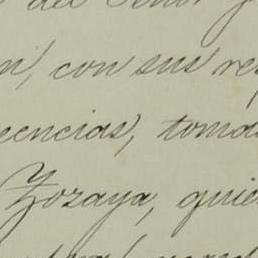 del Señor
n, con sus res
eencias, toma
Zozaya, quie